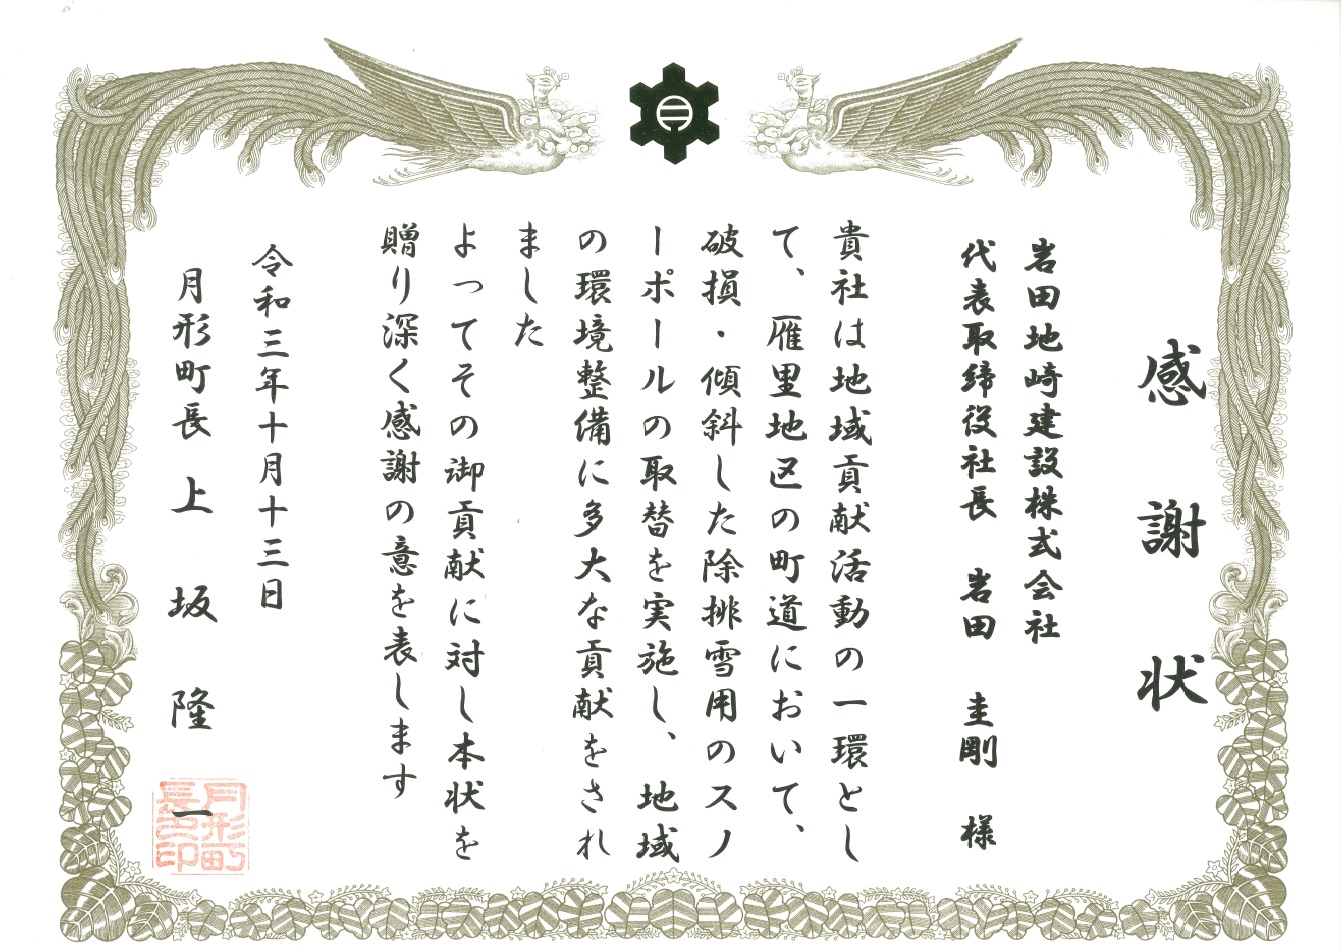 感謝状
岩田地崎建設株式会社
代表取締役社長 岩田 圭剛 様
貴社は地域貢献活動の一環とし
て、雁里地区の町道において、
破損・傾斜した除排雪用のスノ
ーポールの取替を実施し、地域
の環境整備に多大な貢献をされ
ました
よってその御貢献に対し本状を
贈り深く感謝の意を表します
令和三年十月十三日
月形町長 上坂隆一
月形町
長之印